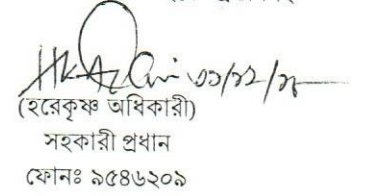 ৩১/১২/১৮
(হরেকৃষ্ণ অধিকারী)
সহকারী প্রধান
ফোনঃ ৯৫৪৬২০৯